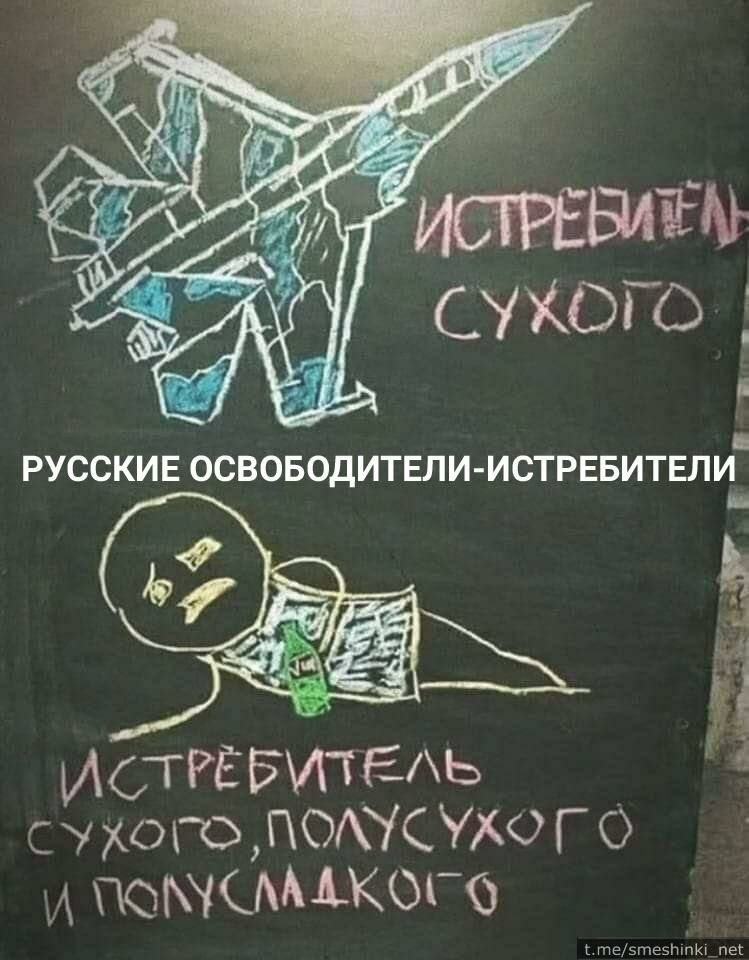 ИСТРЕБИТЕЛЬ
СУХОГО
РУССКИЕ ОСВОБОДИТЕЛИ-ИСТРЕБИТЕЛИ
ИСТРЕБИТЕЛЬ
СУХОГО, ПОЛУСУХОГО
И ПОЛУСЛАДКОГО
t.me/smeshinki_net